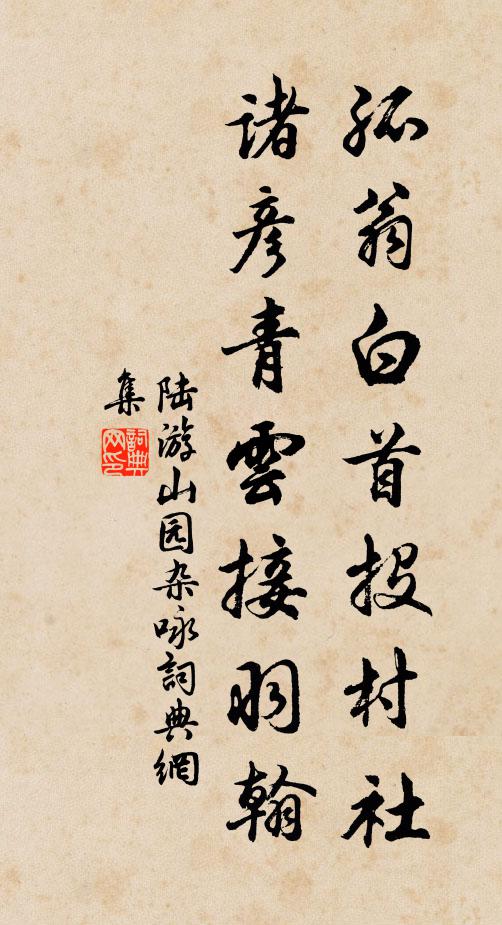 孤翁白首投村社
诸彦青雲接羽翰
陆游山园杂咏詞典網
集
詞典网印